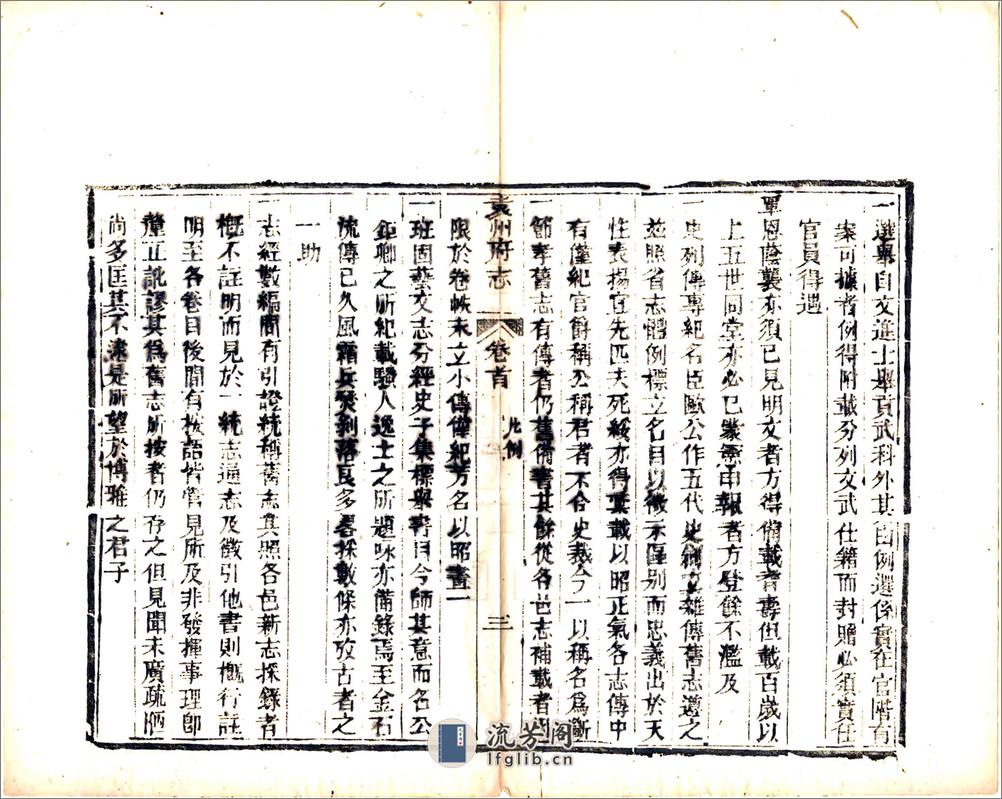 一選舉自文進士舉貢武科外其由例選係實在官階有
案可據者例得附載分列文武仕籍而封贈必須實任
官員得遇
覃恩蔭襲亦須已見明文者方得備載耆壽但載百歲以
上五世同堂亦必已蒙憲申報者方登餘不濫及
一史列傳專紀名臣歐公作五代史創立雜傳舊志遵之
茲照省志體例標立名目以微示區别而忠義出於天
性表揚宜先匹夫死綏亦得彙載以昭正氣各志傳中
有僅紀官爵稱公稱君者不合史裁今一以稱名為斷
一節孝舊志有傳者仍舊備書其餘從各邑志補載者
限於卷帙未立小傳僅紀芳名以昭畫一
袁州府志
卷首
凡例
三
一班固藝文志分經史子集標舉書目今師其意而名公
鉅卿之所紀載騷人逸士之所題咏亦備錄焉至金石
流傳已久風霜兵燹剥落良多畧採數條亦攷古者之
一助
一志經數編間有引證統稱舊志其照各邑新志採錄者
概不註明而見於一統志通志及徵引他書則概行註
明至各卷目後間有按語皆管見所及非發揮事理卽
釐正訛謬其為舊志所按者仍存之但見聞未廣疏陋
尚多匡其不逮是所望於博雅之君子
流芳阁
lfglib.cn